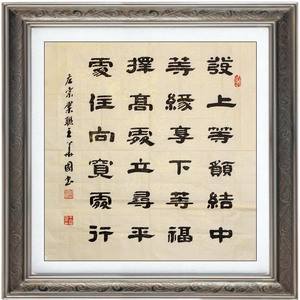 發上等願結中
等緣享下等福
擇高處立尋平
處住向寬處行
左宗棠联王國书